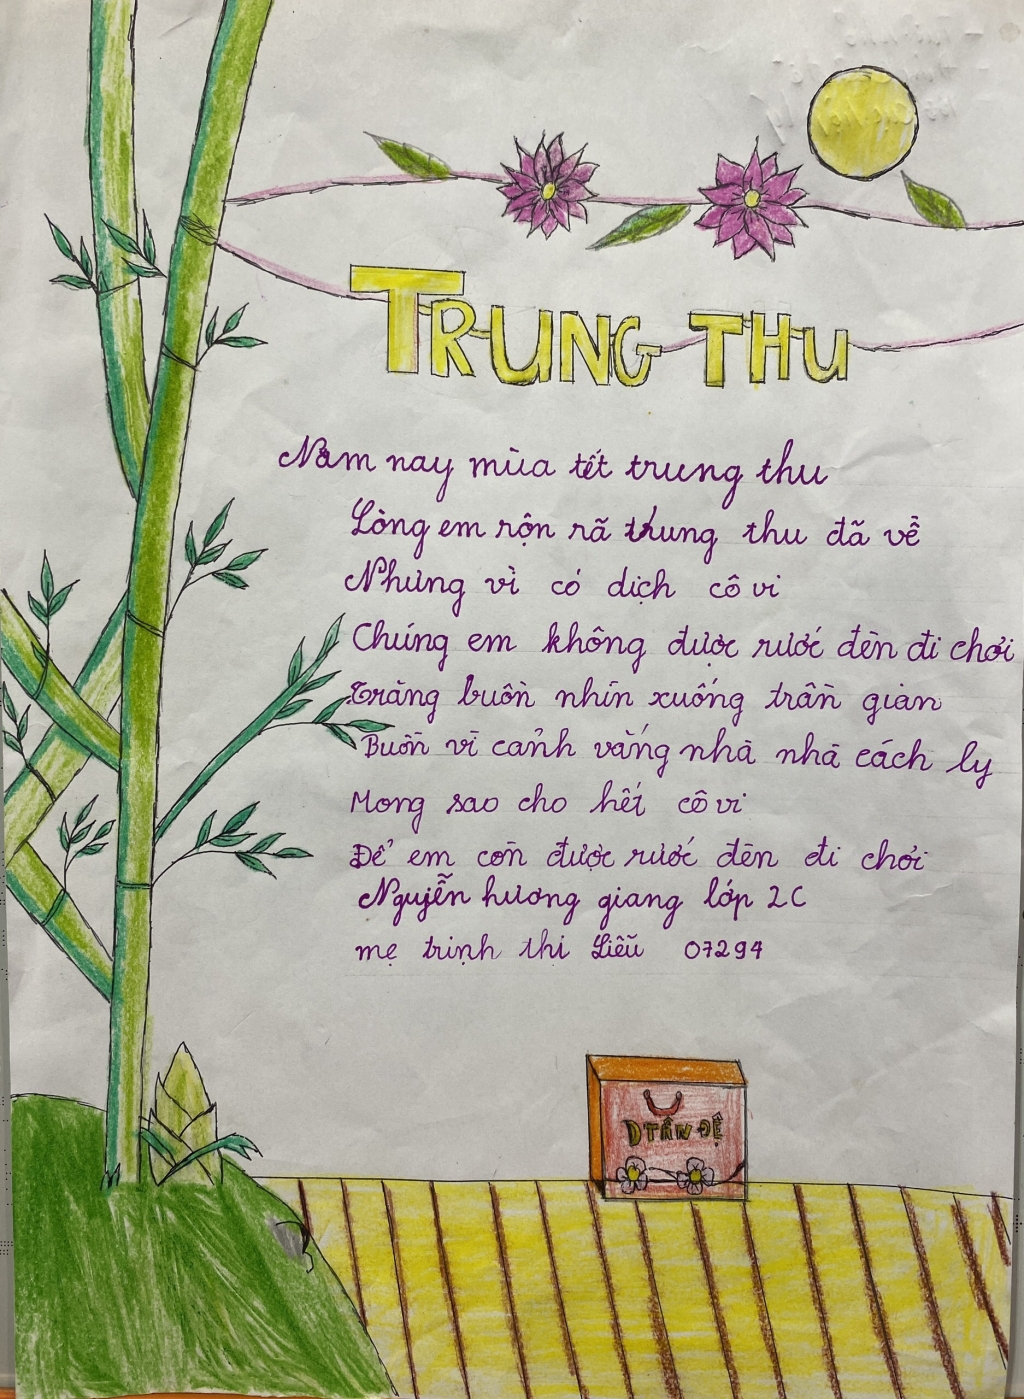 TRUNG THU
Năm nay mùa tết trung thu
Lòng em rộn rã trung thu đã về
Nhưng vì có dịch cô vi
Chúng em không được rước đèn đi chơi
Trăng buồn nhìn xuống trần gian
Buồn vì cảnh vắng nhà nhà cách ly
Mong sao cho hết cô vi
Để em còn được rước đèn đi chơi
Nguyễn hương giang lớp 2C
mẹ trịnh thi Liễu 07294
DTÂN ĐỆ